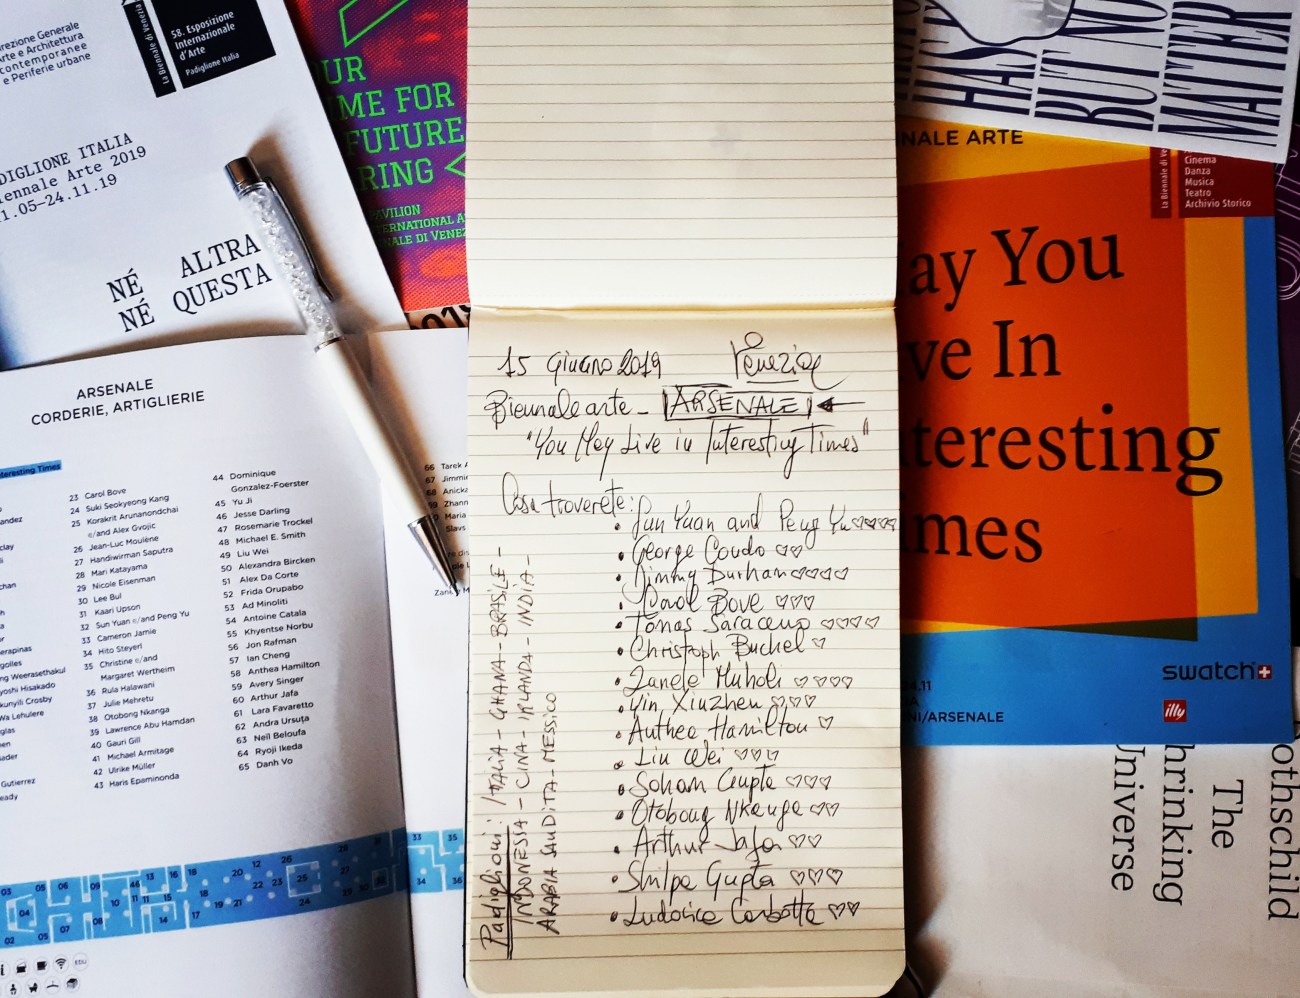 rezione Generale
Arte e Architettura
contemporanee
e Periferie urbane
La Biennale di Venezia
58. Esposizione
Internazionale
d'Arte
Padiglione Italia
DIGLIONE ITALIA
iennale Arte 2019
1.05–24.11.19
NÉ ALTRA
NÉ QUESTA
UR
ME FOR
FUTURE
RING <
AVILION
TERNATIONAL A
NALE DI VENEZ
ARSENALE
CORDERIE, ARTIGLIERIE
teresting Times
23 Carol Bove
24 Suki Seokyeong Kang
25 Korakrit Arunanondchai
e/and Alex Gvojic
26 Jean-Luc Moulène
27 Handiwirman Saputra
28 Mari Katayama
29 Nicole Eisenman
30 Lee Bul
31 Kaari Upson
32 Sun Yuan e/and Peng Yu
33 Cameron Jamie
34 Hito Steyerl
35 Christine e/and
Margaret Wertheim
36 Rula Halawani
37 Julie Mehretu
38 Otobong Nkanga
39 Lawrence Abu Hamdan
40 Gauri Gill
41 Michael Armitage
42 Ulrike Müller
43 Haris Epaminonda
44 Dominique
Gonzalez-Foerster
45 Yu Ji
46 Jesse Darling
47 Rosemarie Trockel
48 Michael E. Smith
49 Liu Wei
50 Alexandra Bircken
51 Alex Da Corte
52 Frida Orupabo
53 Ad Minoliti
54 Antoine Catala
55 Khyentse Norbu
56 Jon Rafman
57 Ian Cheng
58 Anthea Hamilton
59 Avery Singer
60 Arthur Jafa
61 Lara Favaretto
62 Andra Ursuţa
63 Neïl Beloufa
64 Ryoji Ikeda
65 Danh Vo
66 Tarek A
67 Jimmie
68 Anicka
Zhann
Maria
Slavs
15 Giugno 2019 Venezia
Biennale arte - ARSENALE
"You May Live in Interesting Times"
Cosa troverete:
• Sun Yuan and Peng Yu ♡♡♡♡
• George Condo ♡♡
• Jimmy Durham ♡♡♡♡
• Carol Bove ♡♡♡
• Tomas Saraceno ♡♡♡♡
• Christoph Buchel ♡
• Zanele Muholi ♡♡♡♡
• Yin Xiuzhen ♡♡♡
• Authea Hamilton ♡
• Liu Wei ♡♡♡
• Soham Gupta ♡♡♡
• Otobong Nkanga ♡♡
• Arthur Jafa ♡♡
• Shilpa Gupta ♡♡♡
• Ludovica Carbotta ♡♡
Padiglioni: ITALIA - GHANA - BRASILE -
INDONESIA - CINA - IRLANDA - INDIA -
ARABIA SAUDITA - MESSICO
HA
BUT NO
MATTER
NNALE ARTE
La Biennale di Ve
Cinema
Danza
Musica
Teatro
Archivio Storico
ay You
ve In
teresting
mes
4.11
NI/ARSENALE
swatch
illy
othschild
The
hrinking
Universe